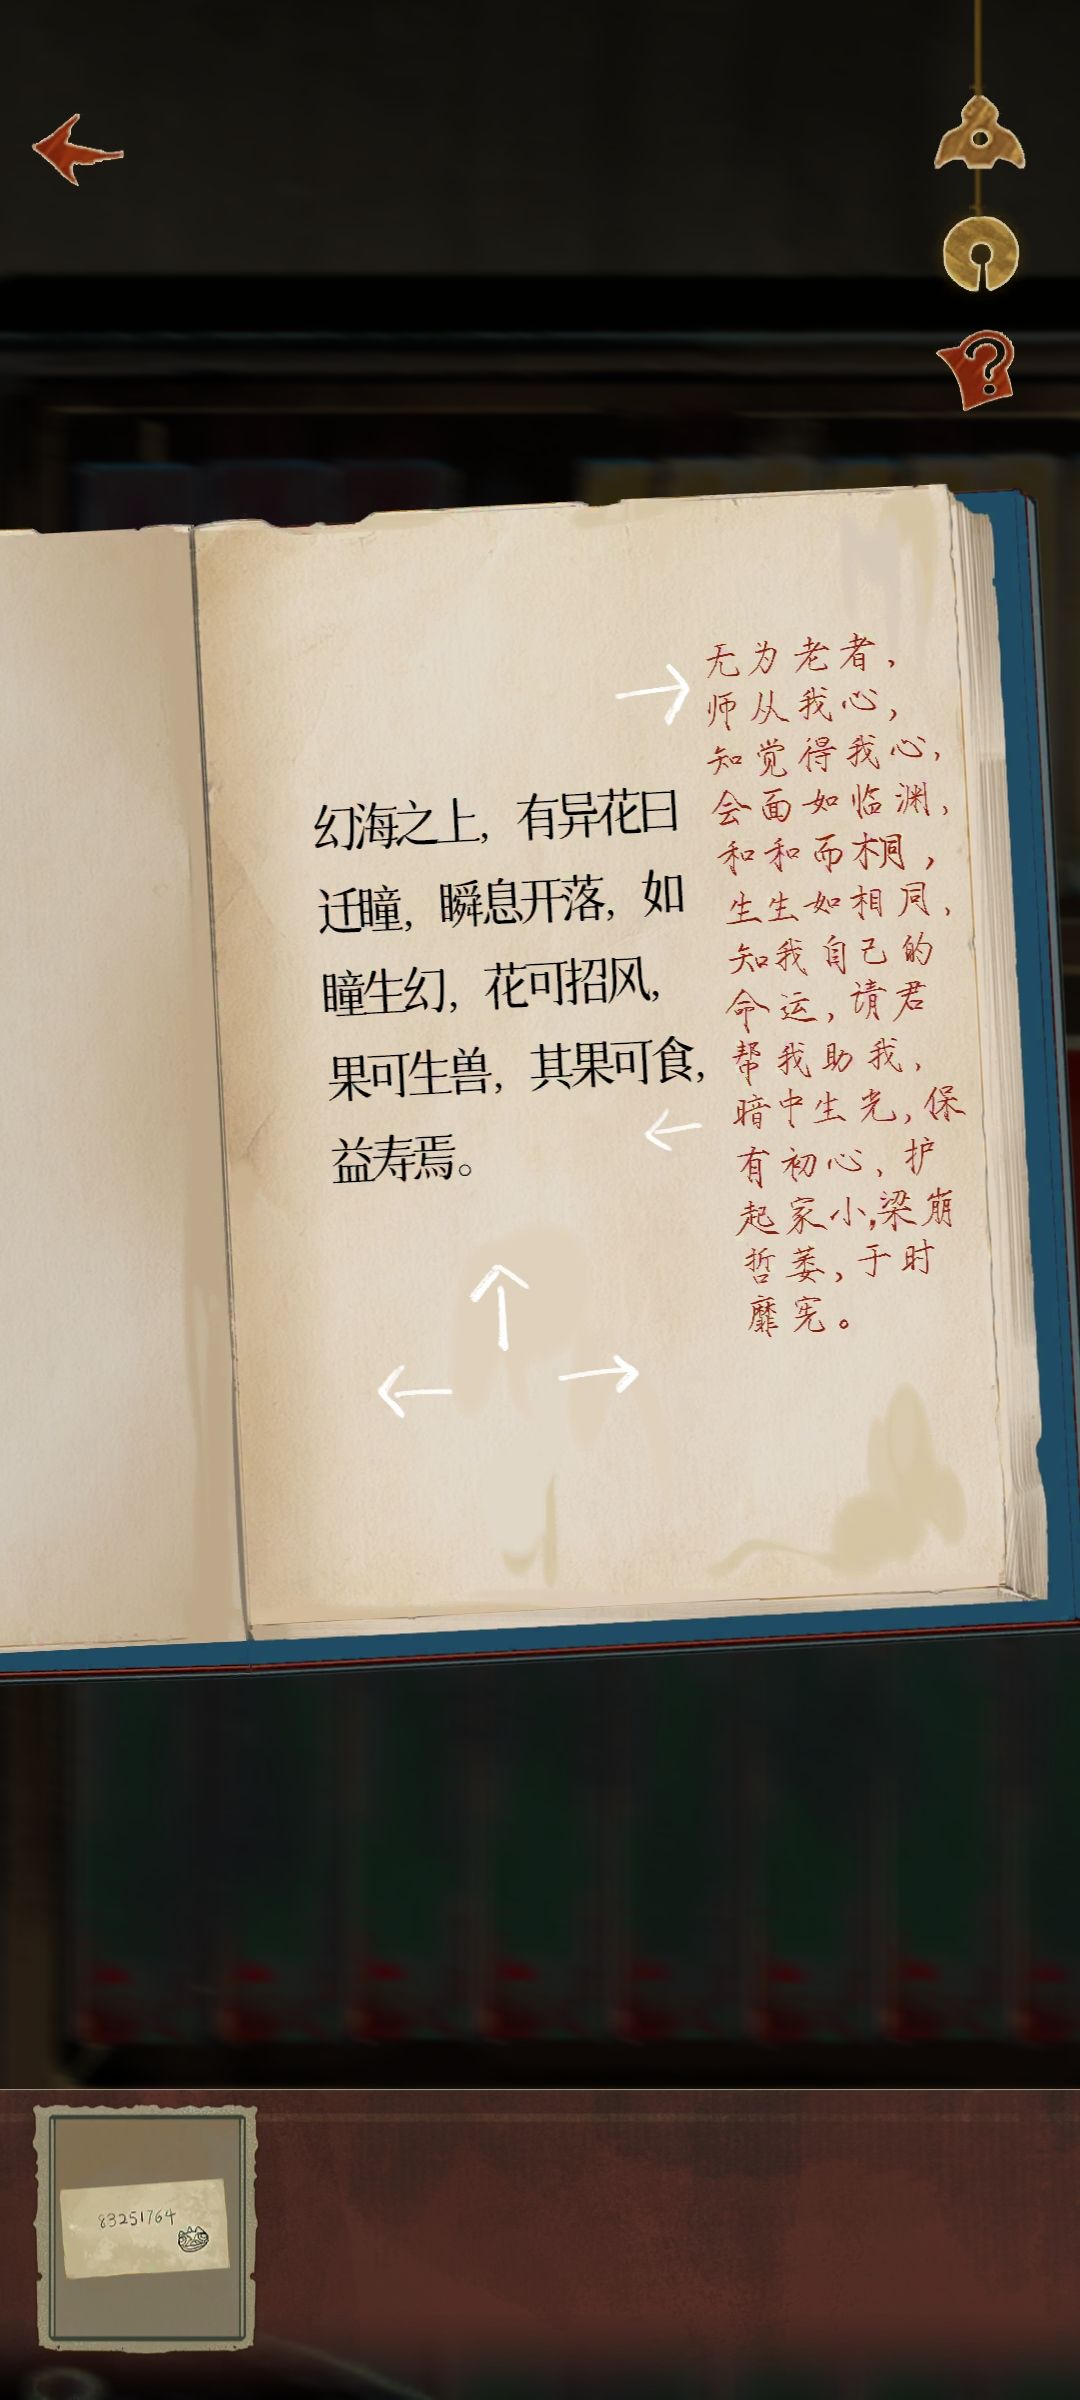 幻海之上，有异花曰
迁瞳，瞬息开落，如
瞳生幻，花可招风，
果可生兽，其果可食，
益寿焉。
无为老者，
师从我心，
知觉得我心，
会面如临渊，
和和而桐，
生生如相同，
知我自己的
命运，请君
帮我助我，
暗中生光，保
有初心、护
起家小,梁崩
哲萎，于时
靡宪。
83251764